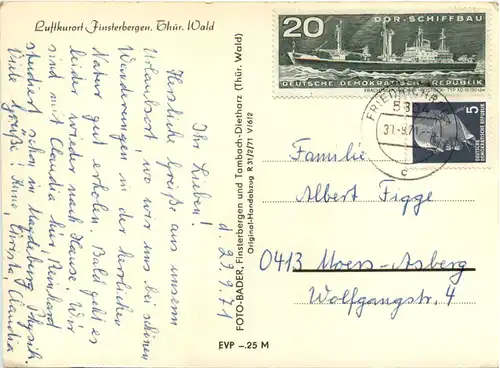 Luftkurort Finsterbergen, Thür. Wald
d. 29.9.71
Ihr Lieben!
Herzliche Grüße aus unserem
Urlaubsort, wo wir uns bei schönen
Wanderungen in der herrlichen
Natur gut erholen. Bald geht es
leider wieder nach Hause. Wir
sind mit Claudia hier, Reinhard
studiert schon in Magdeburg Physik.
Viele Grüße! Christa, Claudia
FOTO-BADER, Finsterbergen und Tambach-Dietharz (Thür. Wald)
Original-Handabzug R 31/2/71 V1612
EVP –.25 M
20
DDR-SCHIFFBAU
DEUTSCHE DEMOKRATISCHE REPUBLIK
5
DEUTSCHE
DEMOKRATISCHE
REPUBLIK
c
Familie
Albert Figge
0413 Moers-Asberg
Wolfgangstr. 4